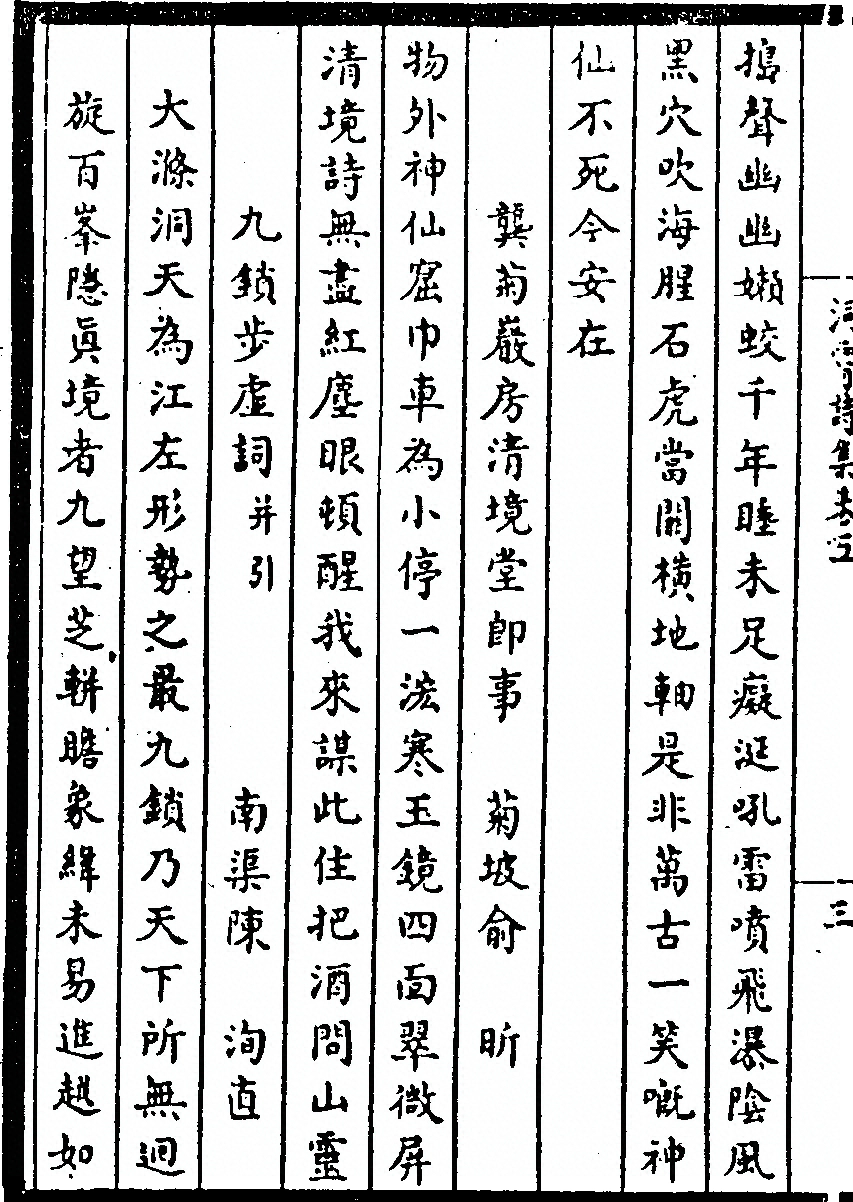 搗聲幽幽嬾蛟千年睡未足癡涎吼雷噴飛瀑陰風
黑穴吹海腥石虎當關橫地軸是非萬古一笑嘅神
仙不死今安在
龔菊巖房清境堂卽事　菊坡俞　昕
物外神仙窟巾車為小停一泓寒玉鏡四面翠微屏
清境詩無盡紅塵眼頓醒我來謀此住把酒問山靈
九鎖步虛詞并引　南渠陳　洵直
大滌洞天為江左形勢之最九鎖乃天下所無迴
旋百峯隱眞境者九望芝軿瞻象緯未易進趍如
洞霄詩集卷五
三